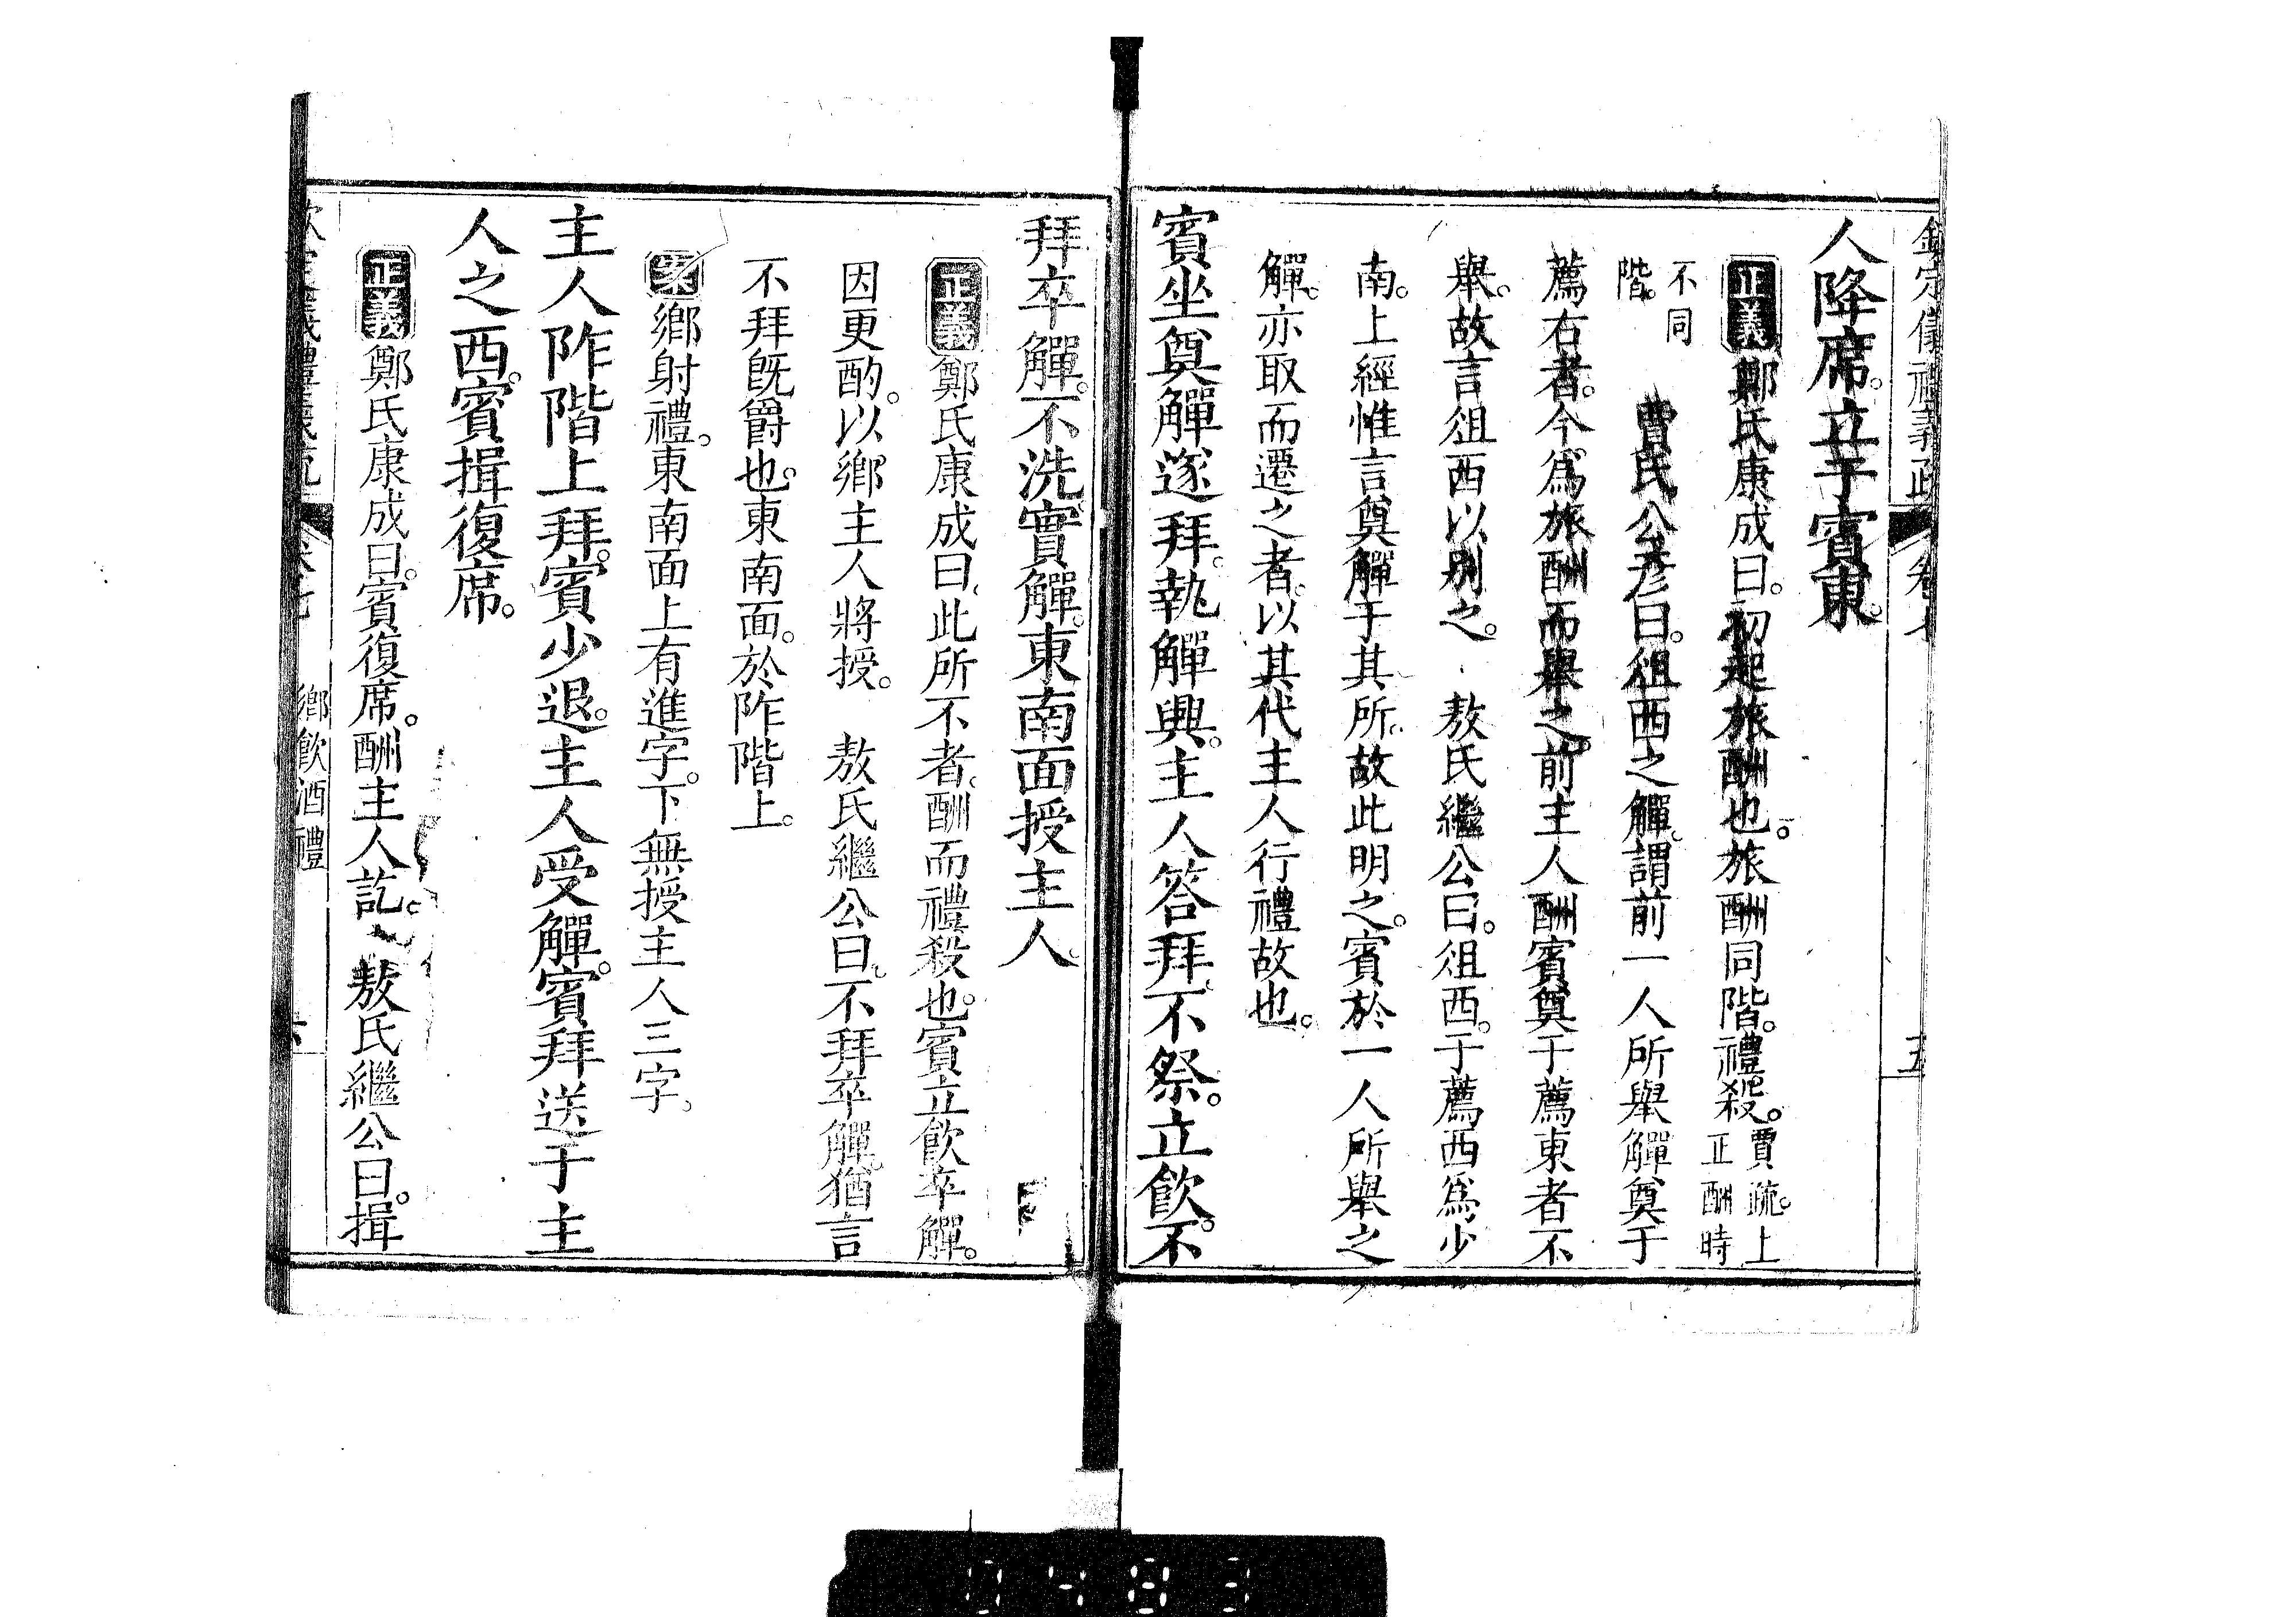 人降席。立于賓東。
正義鄭氏康成曰。初起旅酬也。旅酬同階。禮殺。賈疏。上正酬時
不同階。賈氏公彦曰。俎西之觶。謂前一人所舉觶奠于
薦右者。今爲旅酬而舉之。前主人酬賓奠于薦東者不
舉。故言俎西以別之。敖氏繼公曰。俎西。于薦西爲少
南。上經惟言奠觶于其所。故此明之。賓於一人所舉之
觶。亦取而遷之者。以其代主人行禮故也。
賓坐奠觶遂拜。執觶興。主人答拜。不祭。立飲。不
拜卒觶。不洗。實觶。東南面授主人。
正義鄭氏康成曰。此所不者。酬而禮殺也。賓立飲卒觶。
因更酌。以鄉主人將授。敖氏繼公曰。不拜卒觶。猶言
不拜旣爵也。東南面。於阼階上。
案鄉射禮。東南面上有進字。下無授主人三字。
主人阼階上拜。賓少退。主人受觶。賓拜送于主
人之西。賓揖復席。
正義鄭氏康成曰。賓復席。酬主人訖。敖氏繼公曰。揖
鄉飲酒禮